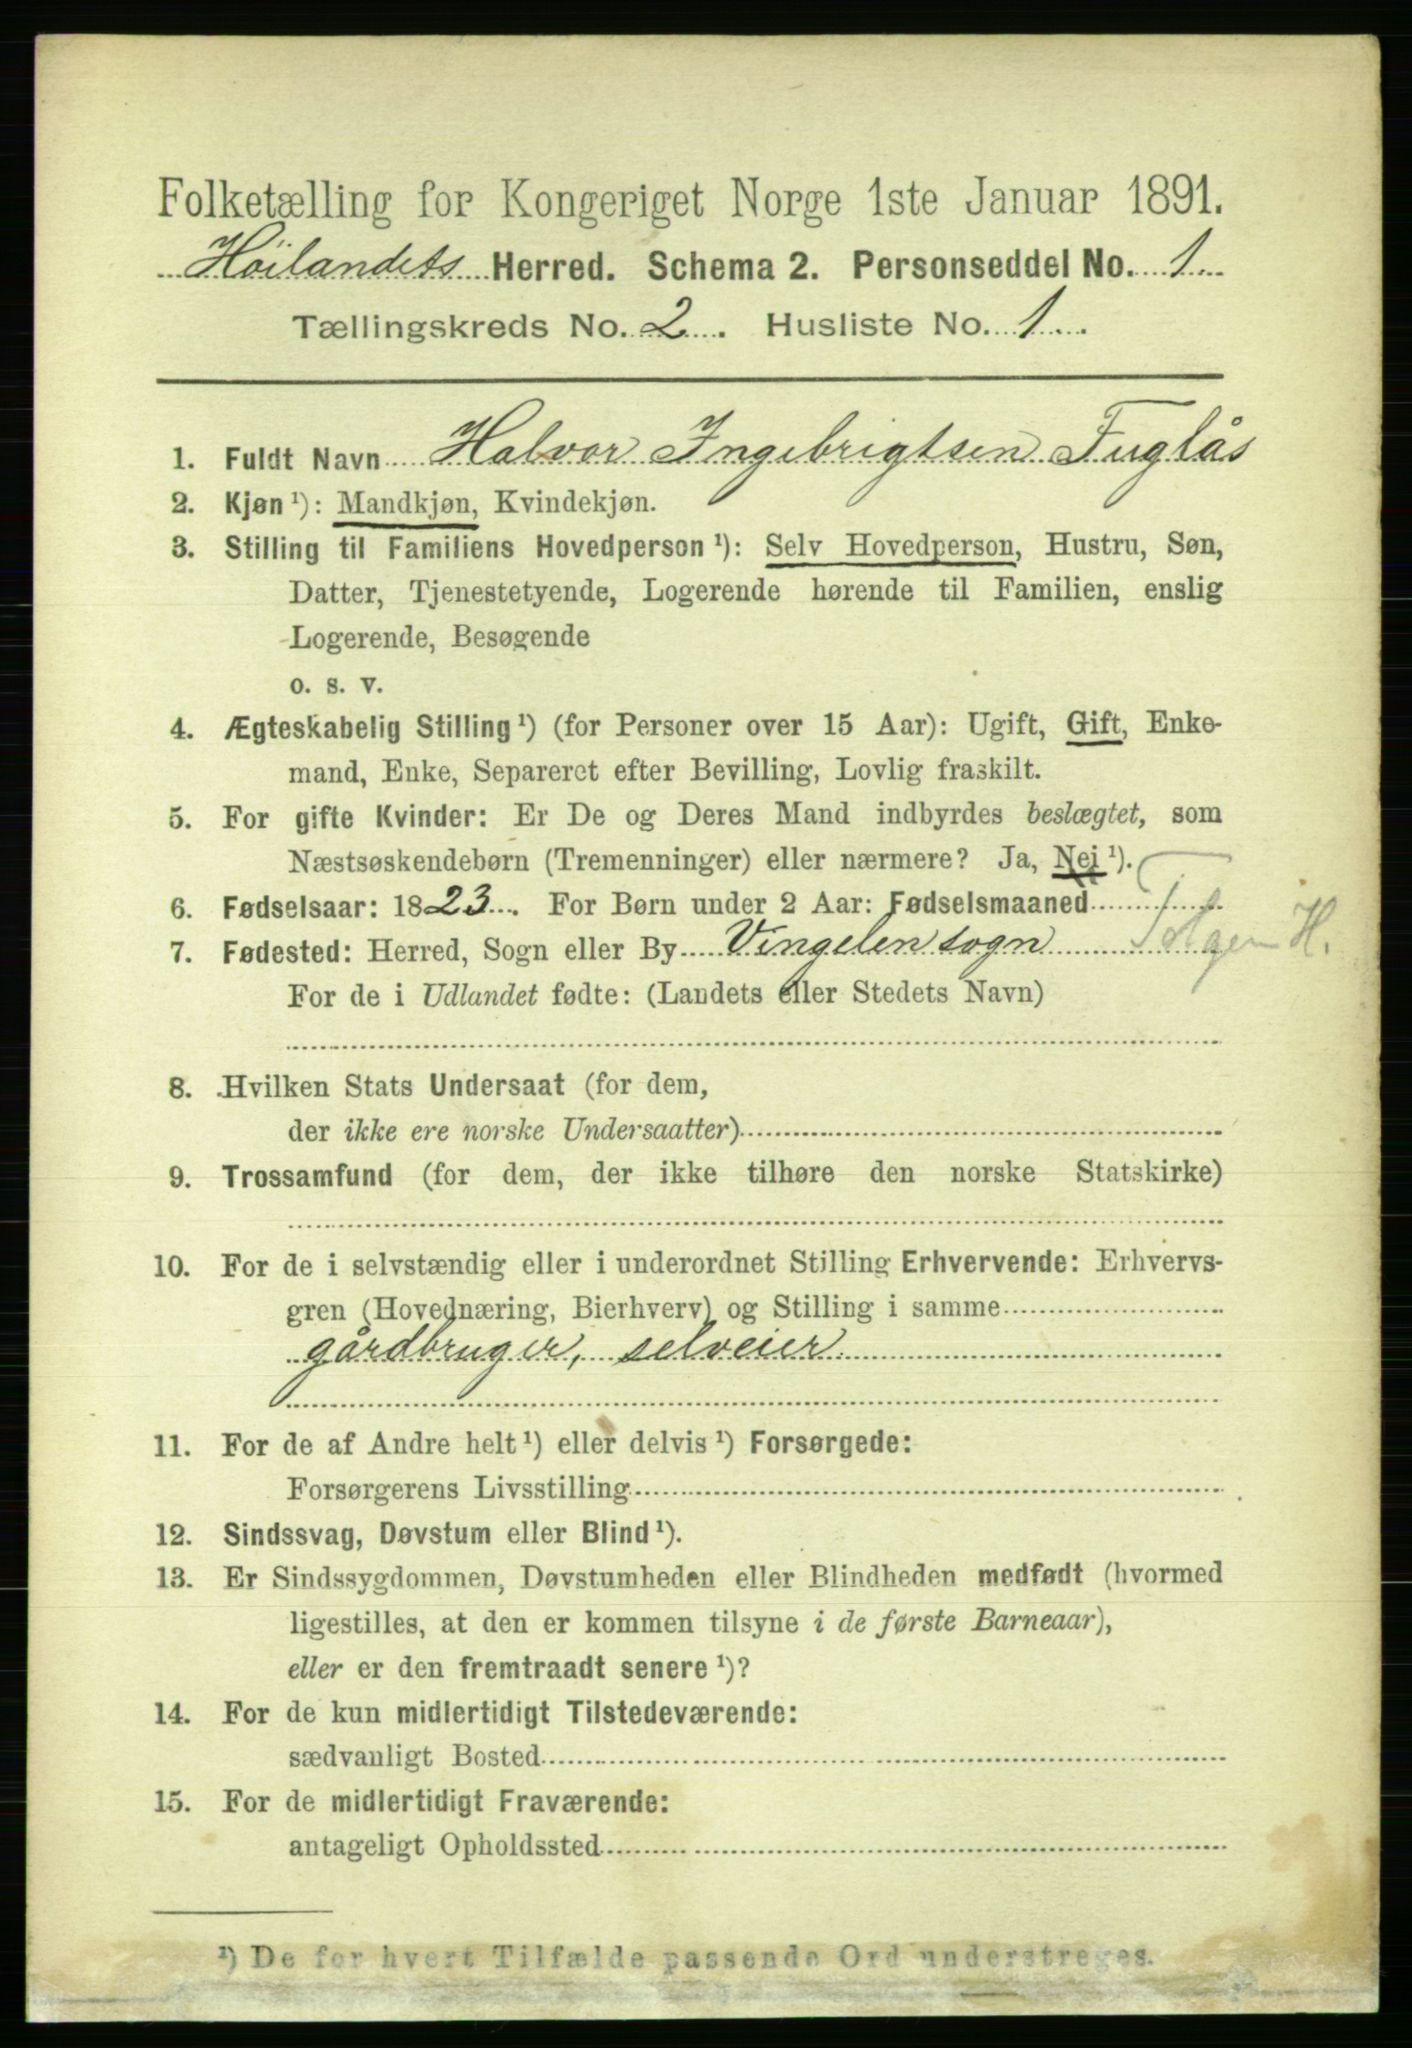 Folketælling for Kongeriget Norge 1ste Januar 1891.
Höilandets Herred. Schema 2. Personseddel No. 1
Tællingskreds No. 2. Husliste No. 1
1. Fuldt Navn Halvor Ingebrigtsen Fuglås
2. Kjøn ¹): Mandkjøn, Kvindekjøn.
3. Stilling til Familiens Hovedperson ¹): Selv Hovedperson, Hustru, Søn,
Datter, Tjenestetyende, Logerende hørende til Familien, enslig
Logerende, Besøgende
o. s. v.
4. Ægteskabelig Stilling ¹) (for Personer over 15 Aar): Ugift, Gift, Enke-
mand, Enke, Separeret efter Bevilling, Lovlig fraskilt.
5. For gifte Kvinder: Er De og Deres Mand indbyrdes beslægtet, som
Næstsøskendebørn (Tremenninger) eller nærmere? Ja, Nei ¹).
6. Fødselsaar: 1823. For Børn under 2 Aar: Fødselsmaaned
7. Fødested: Herred, Sogn eller By Vingelen sogn Tolgen H.
For de i Udlandet fødte: (Landets eller Stedets Navn)
8. Hvilken Stats Undersaat (for dem,
der ikke ere norske Undersaatter)
9. Trossamfund (for dem, der ikke tilhøre den norske Statskirke)
10. For de i selvstændig eller i underordnet Stilling Erhvervende: Erhvervs-
gren (Hovednæring, Bierhverv) og Stilling i samme
gårdbruger, selveier
11. For de af Andre helt ¹) eller delvis ¹) Forsørgede:
Forsørgerens Livsstilling
12. Sindssvag, Døvstum eller Blind ¹).
13. Er Sindssygdommen, Døvstumheden eller Blindheden medfødt (hvormed
ligestilles, at den er kommen tilsyne i de første Barneaar),
eller er den fremtraadt senere ¹)?
14. For de kun midlertidigt Tilstedeværende:
sædvanligt Bosted
15. For de midlertidigt Fraværende:
antageligt Opholdssted
¹) De for hvert Tilfælde passende Ord understreges.